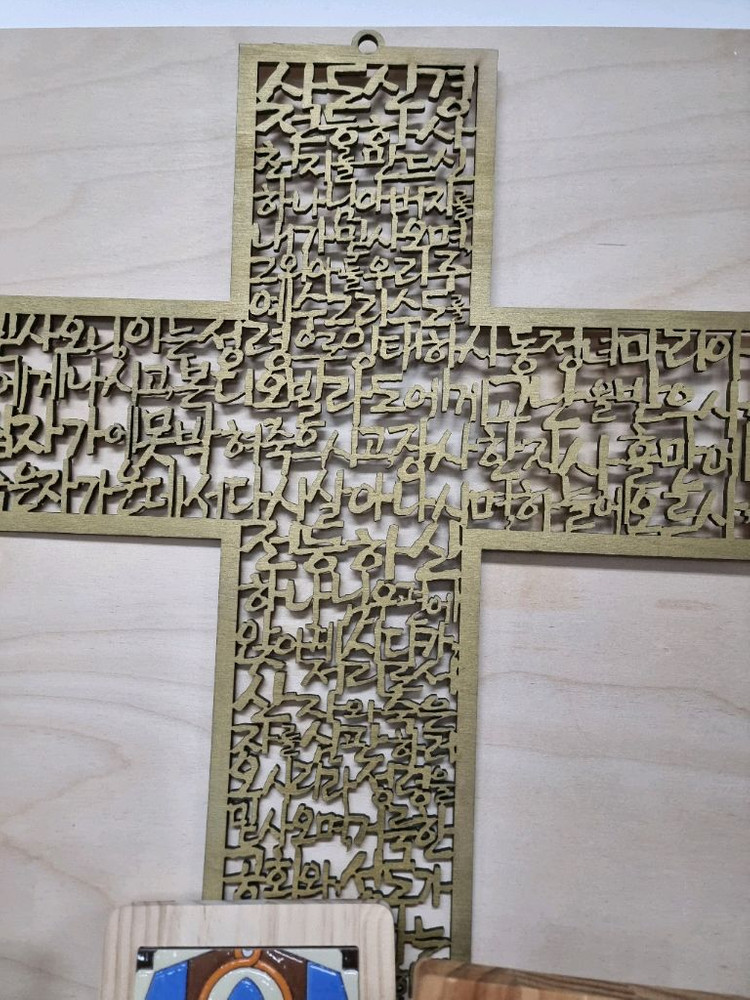 사도신경
전능하사
천지를 만드신
하나님 아버지를
내가 믿사오며
그 외아들 우리 주
예수 그리스도를
믿사오니 이는 성령으로 잉태하사 동정녀 마리아
에게 나시고 본디오 빌라도에게 고난을 받으사
십자가에 못박혀 죽으시고 장사한지 사흘만에
죽은 자 가운데서 다시 살아나시며 하늘에 오르사
전능하신
하나님 우편에
앉아 계시다가
저리로서
산 자와 죽은
자를 심판하러
오시리라 성령을
믿사오며 거룩한
공회와 성도가